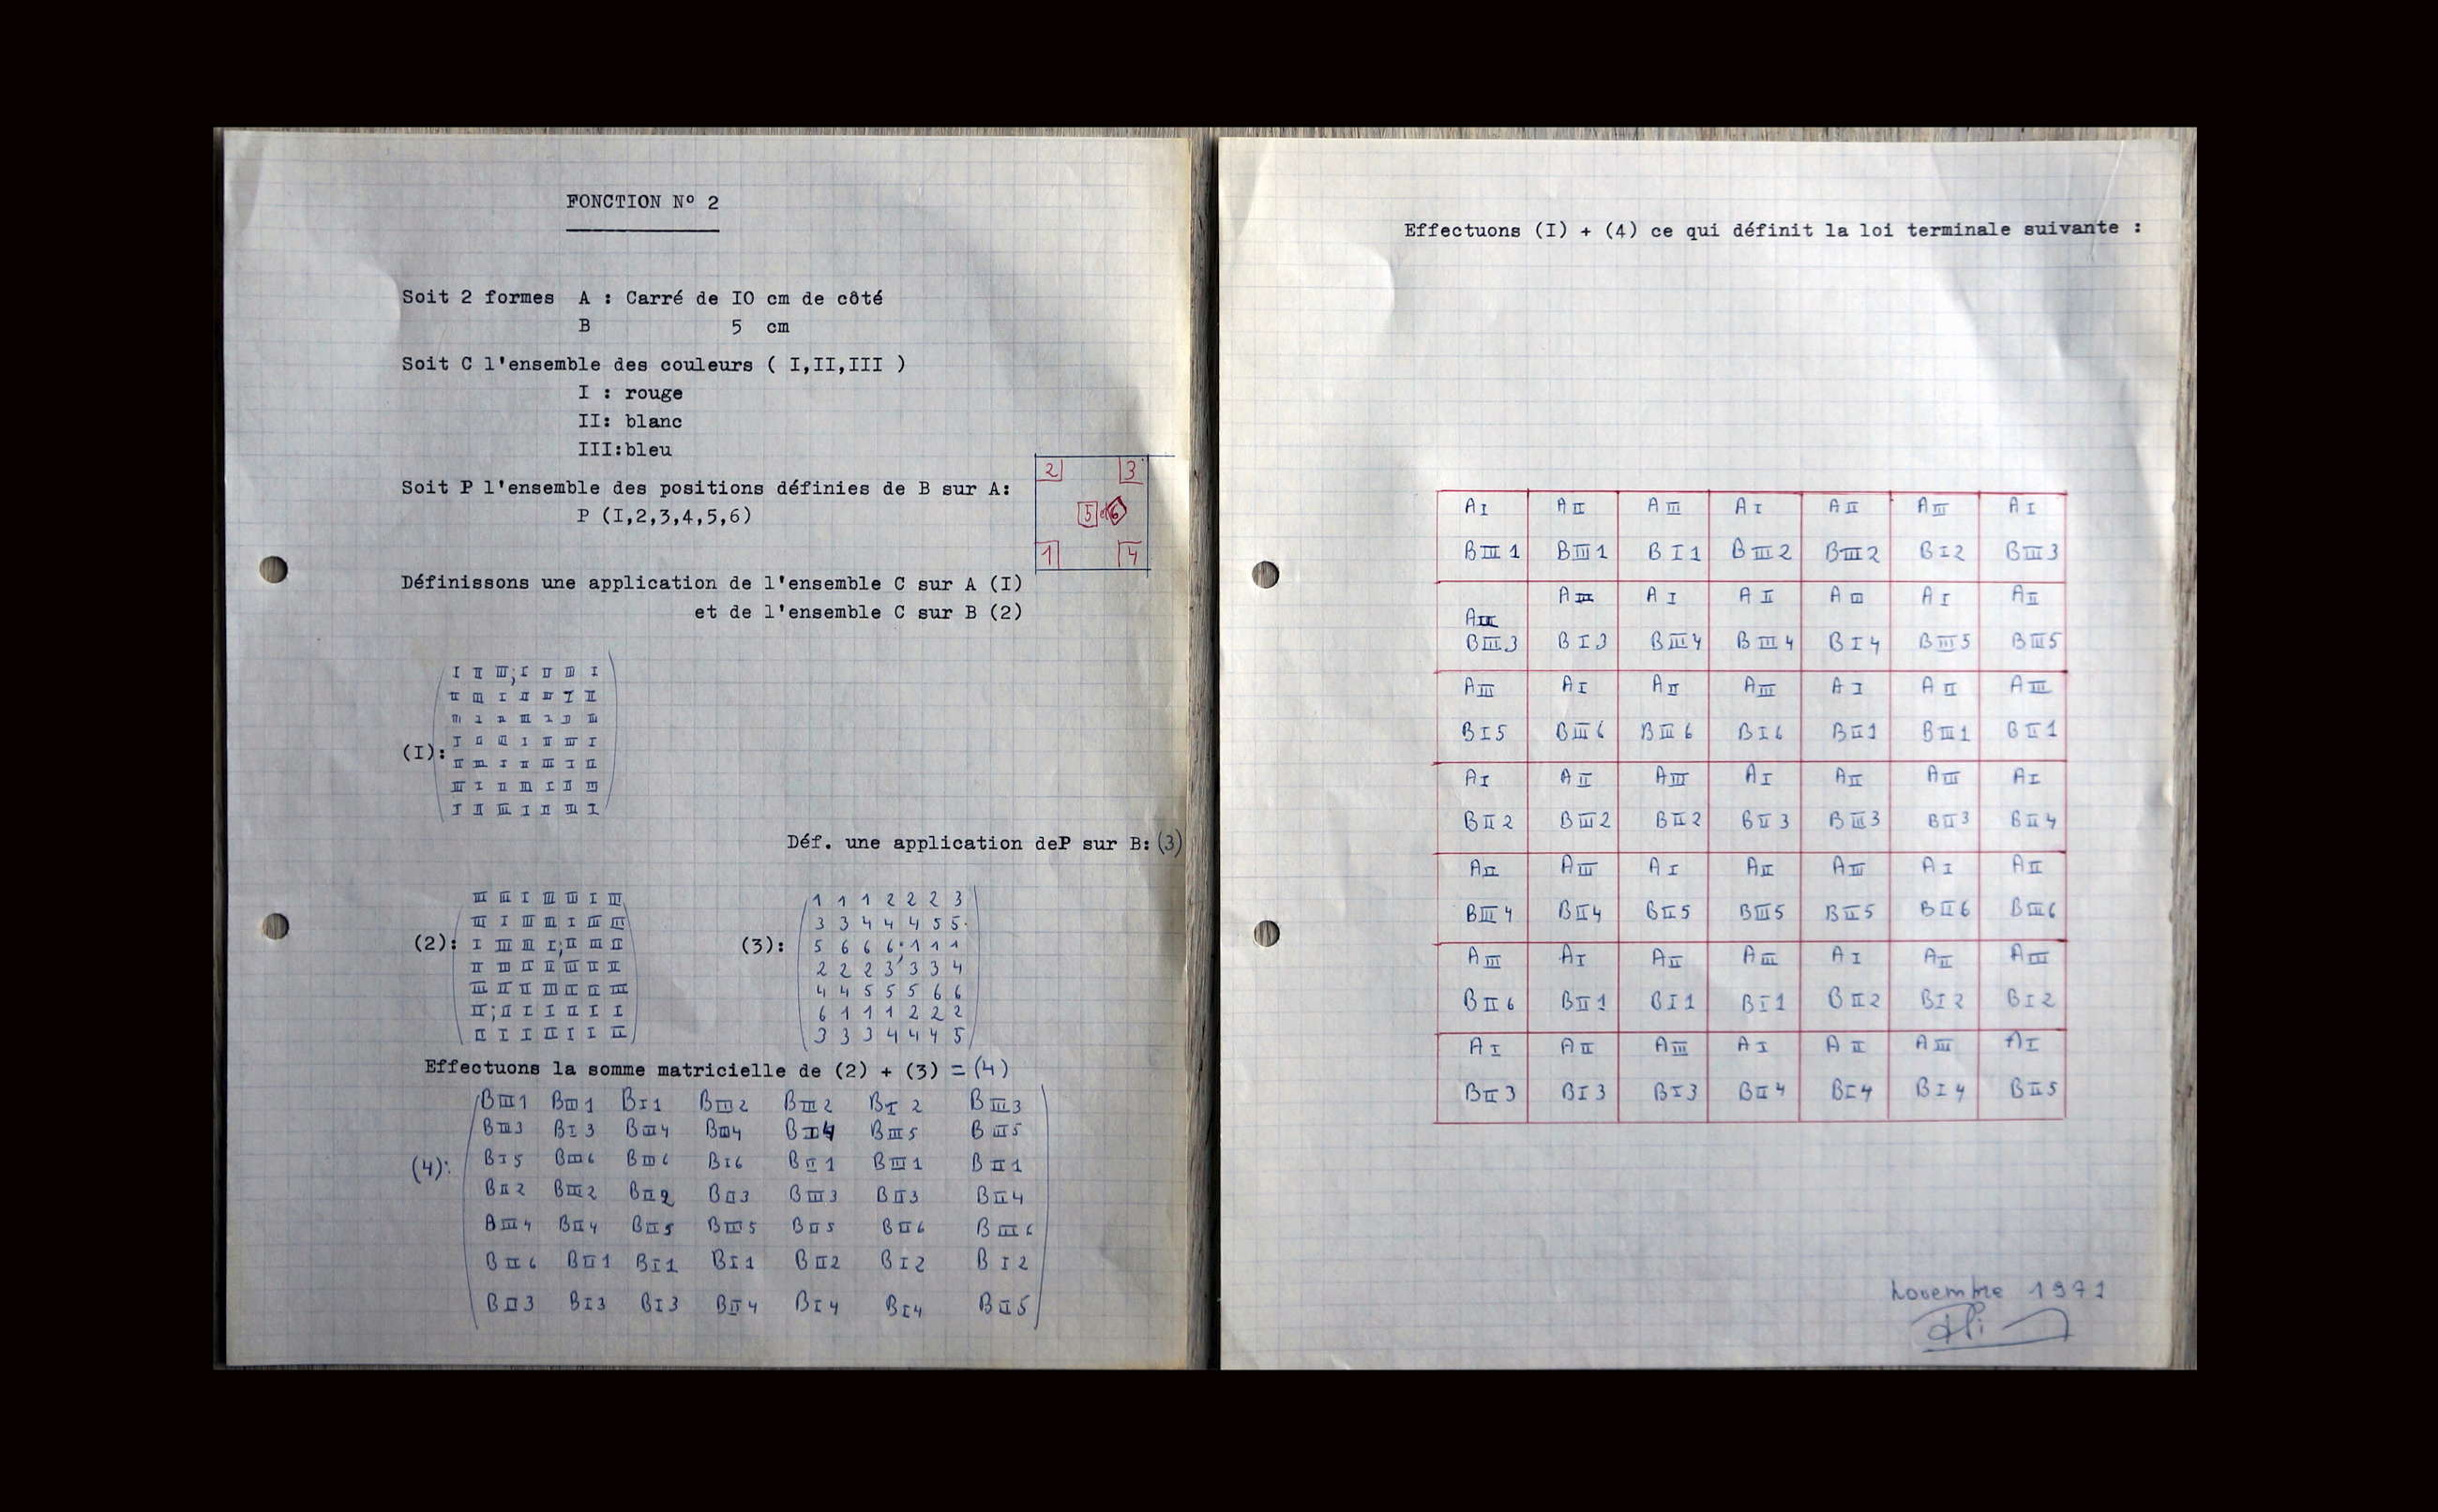 FONCTION N° 2
Soit 2 formes A : Carré de IO cm de côté
B 5 cm
Soit C l'ensemble des couleurs ( I,II,III )
I : rouge
II: blanc
III:bleu
Soit P l'ensemble des positions définies de B sur A:
P (I,2,3,4,5,6)
2 3
5 et 6
1 4
Définissons une application de l'ensemble C sur A (I)
et de l'ensemble C sur B (2)
(I):
I II III ; I II III I
II III I II III I II
III I II III I II III
I II III I II III I
II III I II III I II
III I II III I II III
I II III I II III I
Déf. une application deP sur B: (3)
(2):
III III I III III I III
III I III III I III III
I III III I ; II III II
II III II II III II II
III II II III II II III
II ; II I I II I I
II I I II I I II
(3):
1 1 1 2 2 2 3
3 3 4 4 4 5 5
5 6 6 6 1 1 1
2 2 2 3 3 3 4
4 4 5 5 5 6 6
6 1 1 1 2 2 2
3 3 3 4 4 4 5
Effectuons la somme matricielle de (2) + (3) = (4)
(4):
BIII1 BIII1 BI1 BIII2 BIII2 BI2 BIII3
BIII3 BI3 BIII4 BIII4 BI4 BIII5 BIII5
BI5 BIII6 BIII6 BI6 BII1 BIII1 BII1
BII2 BIII2 BII2 BII3 BIII3 BII3 BII4
BIII4 BII4 BII5 BIII5 BII5 BII6 BIII6
BII6 BII1 BI1 BI1 BII2 BI2 BI2
BII3 BI3 BI3 BII4 BI4 BI4 BII5
Effectuons (I) + (4) ce qui définit la loi terminale suivante :
AI AII AIII AI AII AIII AI
BIII1 BIII1 BI1 BIII2 BIII2 BI2 BIII3
AII AIII AI AII AIII AI AII
BIII3 BI3 BIII4 BIII4 BI4 BIII5 BIII5
AIII AI AII AIII AI AII AIII
BI5 BIII6 BIII6 BI6 BII1 BIII1 BII1
AI AII AIII AI AII AIII AI
BII2 BIII2 BII2 BII3 BIII3 BII3 BII4
AII AIII AI AII AIII AI AII
BIII4 BII4 BII5 BIII5 BII5 BII6 BIII6
AIII AI AII AIII AI AII AIII
BII6 BII1 BI1 BI1 BII2 BI2 BI2
AI AII AIII AI AII AIII AI
BII3 BI3 BI3 BII4 BI4 BI4 BII5
novembre 1971